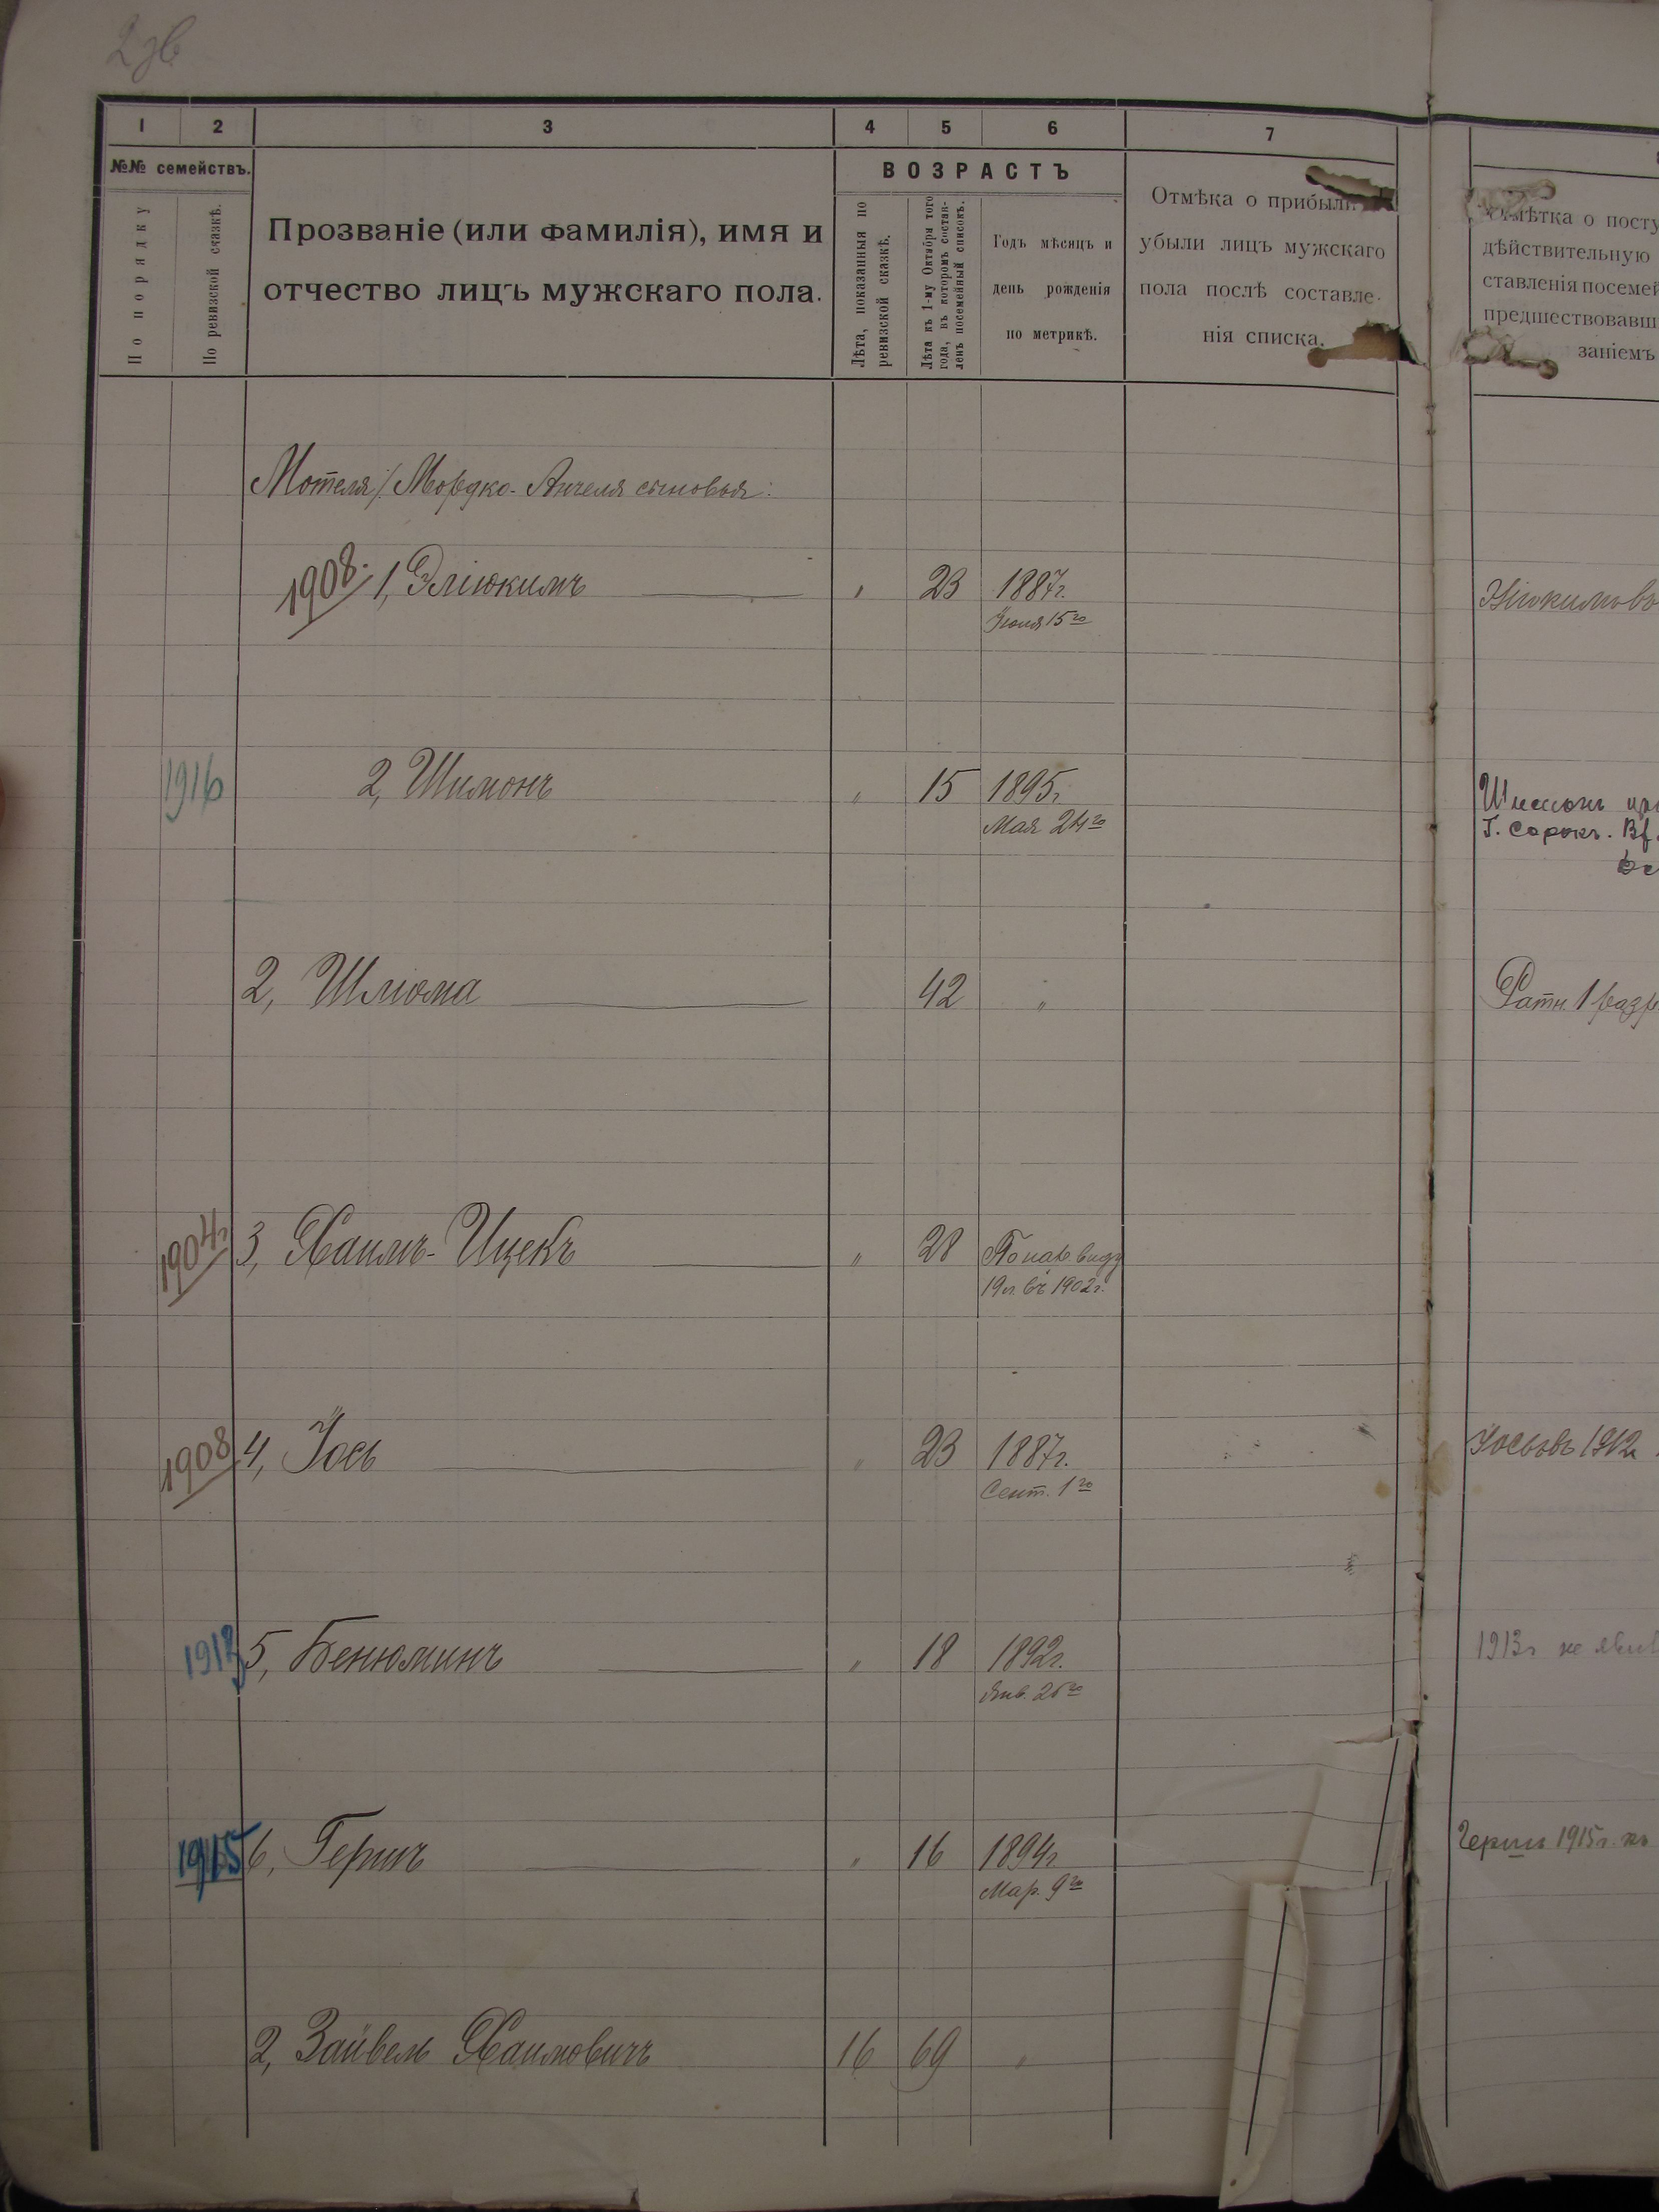 2 зв
1 2 3 4 5 6 7
№№ семействъ.
По порядку
По ревизской сказкѣ.
Прозваніе (или фамилія), имя и
отчество лицъ мужскаго пола.
ВОЗРАСТЪ
Лѣта, показанныя по
ревизской сказкѣ.
Лѣта къ 1-му Октября того
года, въ которомъ состав-
ленъ посемейный списокъ.
Годъ мѣсяцъ и
день рожденія
по метрикѣ.
Отмѣка о прибыли
убыли лицъ мужскаго
пола послѣ составле-
нія списка.
Отмѣтка о посту
дѣйствительную
ставленія посемей
предшествовавш
заніемъ
Мотеля/Мордко-Анчеля сыновья:
1908. 1, Эліокимъ " 23 1887г.
Іюля 15го
1916 2, Шимонъ " 15 1895г.
Мая 24го
Шимонъ
Г. Сорок.
2, Шліома 42 "
Ратн. 1 разр
1904г 3, Хаимъ-Ицекъ " 28 По нар. виду
19 л. въ 1902г.
1908 4, Іось " 23 1887г.
Сент. 1го
Іосьовъ 1912
1913 5, Бенюминъ " 18 1892г.
Янв. 26го
1913г не явив
1915 6, Гершъ " 16 1894г.
Мар. 9го
Гершъ 1915г.
2, Зайвель Хаимовичъ 16 69 "